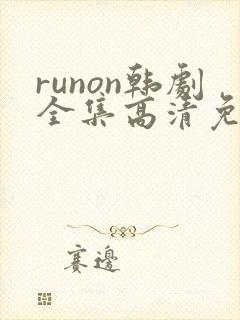 runon韩劇
全集高清免
赛邊